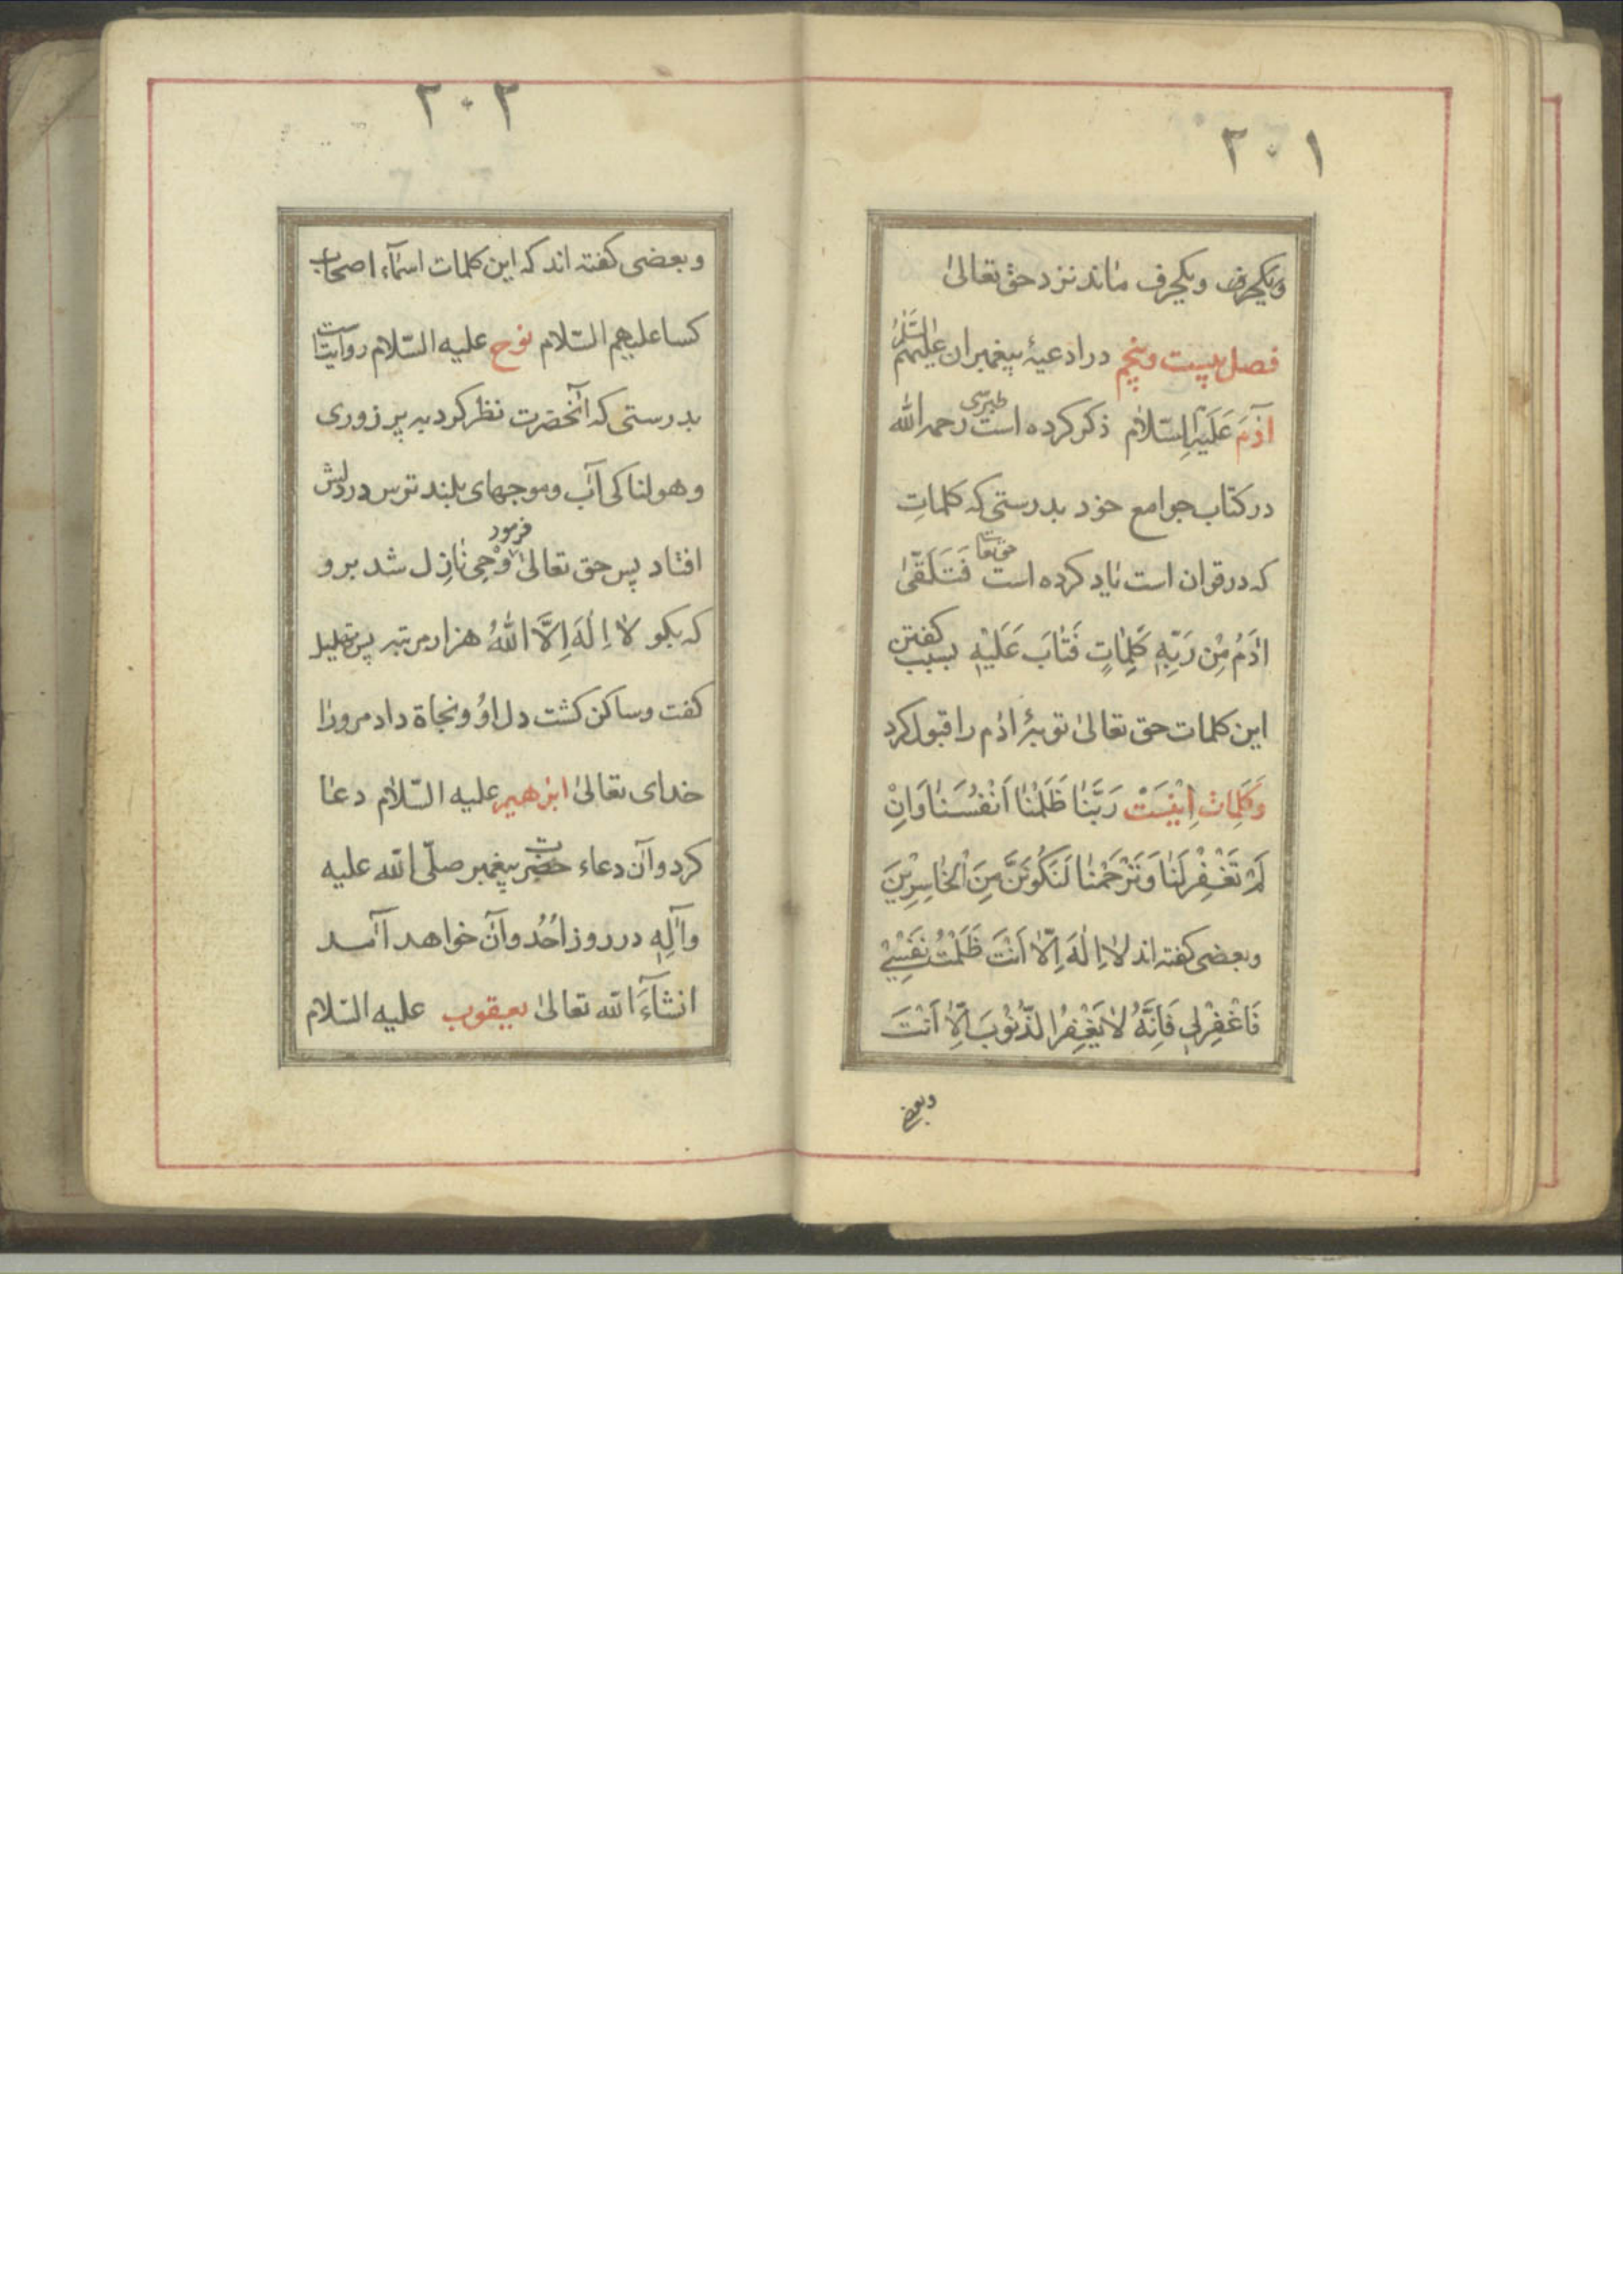 ۲۰۱
ویکحرف ویکحرف ماند نزد حق تعالیٰ
فصل بیست وپنجم در ادعیهٔ پیغمبران علیهم السّلم
آدَمَ عَلَیْهِ السَّلامُ ذکر کرده است طبرسی رحمه الله
در کتاب جوامع خود بدرستی که کلماتِ
که در قران است یاد کرده است حق تعا فَتَلَقّیٰ
ادَمُ مِنْ رَبِّهِ كَلِمَاتٍ فَتَابَ عَلَيْهِ بسبب کفتن
این کلمات حق تعالیٰ توبهٔ ادم را قبول کرد
وَکَلِمات اِینَسْت رَبَّنَا ظَلَمْنَا اَنْفُسَنَا وَاِنْ
لَمْ تَغْفِرْ لَنَا وَتَرْحَمْنَا لَنَكُونَنَّ مِنَ الْخَاسِرِينَ
وبعضی کفته اند لا اِلٰهَ اِلّا اَنْتَ ظَلَمْتُ نَفْسِي
فَاغْفِرْلِي فَاِنَّهُ لا يَغْفِرُ الذُّنُوبَ اِلّا اَنْتَ
وبعضی
۲۰۲
وبعضی کفته اند که این کلمات اسمآء اصحاب
کسا علیهم السّلام نوح علیه السّلام روایتست
بدرستی که آنحضرت نظر کرد به پر زوری
وهولناکی آب وموجهای بلند ترس در دلش
افتاد پس حق تعالیٰ فرمود وَحِی نازِل شد برو
که بکو لا اِلٰهَ اِلَّا اللهُ هزار مرتبه پس تهلیل
کفت وساکن کشت دل اوُ ونجاة داد مرورا
خدای تعالیٰ ابرهیم علیه السّلام دعا
کرد وآن دعاء حضرت پیغمبر صلّی الله علیه
وآلِهِ در روز اُحُد وآن خواهد آمد
انشآءَالله تعالیٰ یعیقوب علیه السّلام